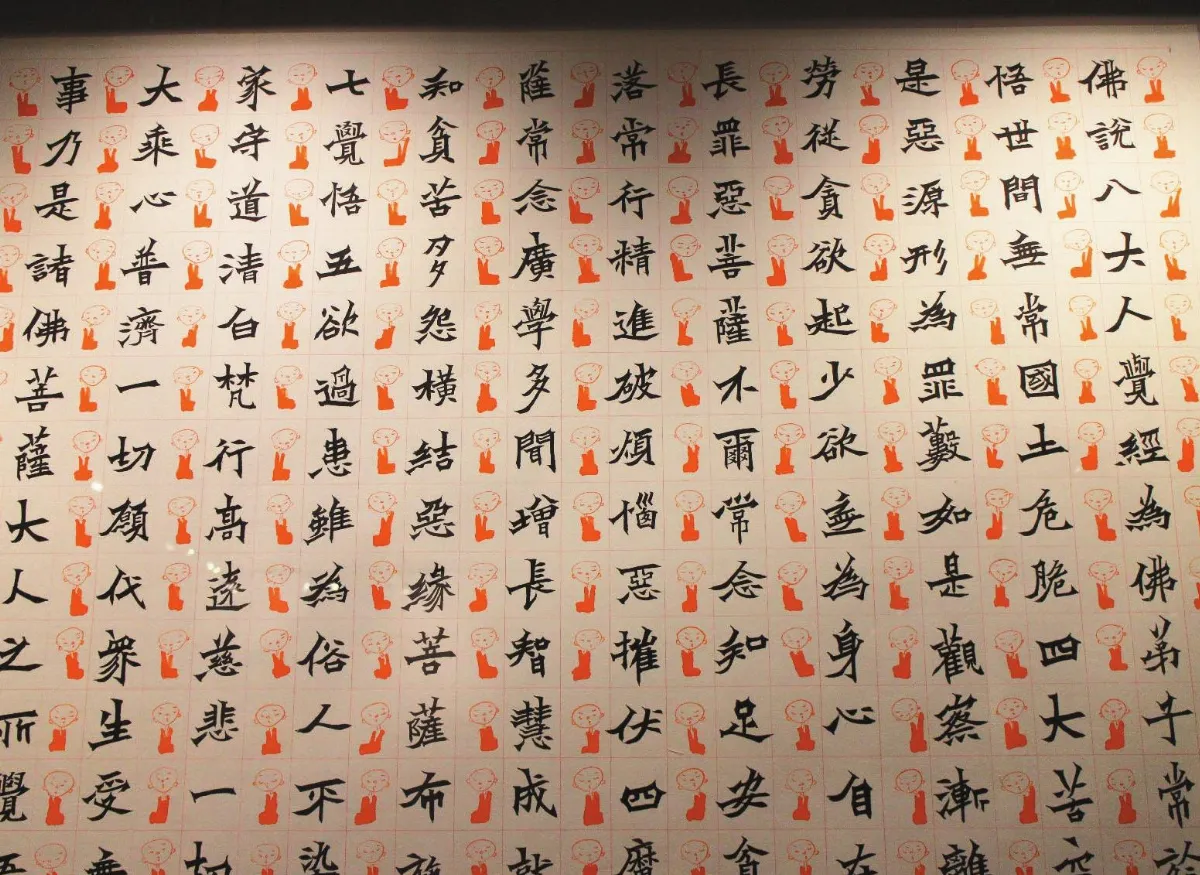 佛說八大人覺經為佛弟子常於
悟世間無常國土危脆四大苦空
是惡源形為罪藪如是觀察漸離
勞從貪欲起少欲無為身心自在
長罪惡菩薩不爾常念知足安貧
落常行精進破煩惱惡摧伏四魔
薩常念廣學多聞增長智慧成就
知貧苦多怨橫結惡緣菩薩布施
七覺悟五欲過患雖為俗人不染
家守道清白梵行高遠慈悲一切
大乘心普濟一切願代眾生受無
事乃是諸佛菩薩大人之所覺